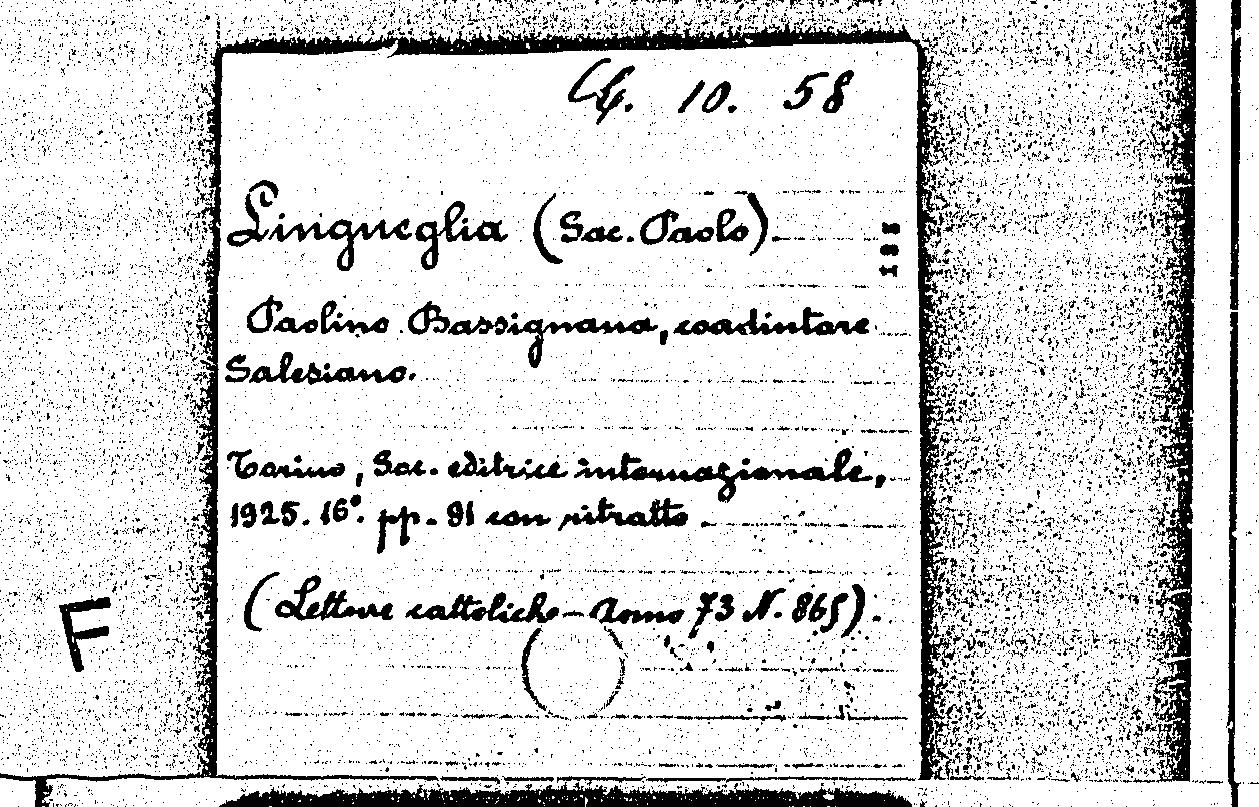 10. 58
Lingueglia (Sac. Paolo).
188
Paolino Bassignana, coadiutore
Salesiano.
Torino, Soc. editrice internazionale,
1925. 16°. pp. 91 con ritratto.
(Letture cattoliche - Anno 73 N. 865).
F